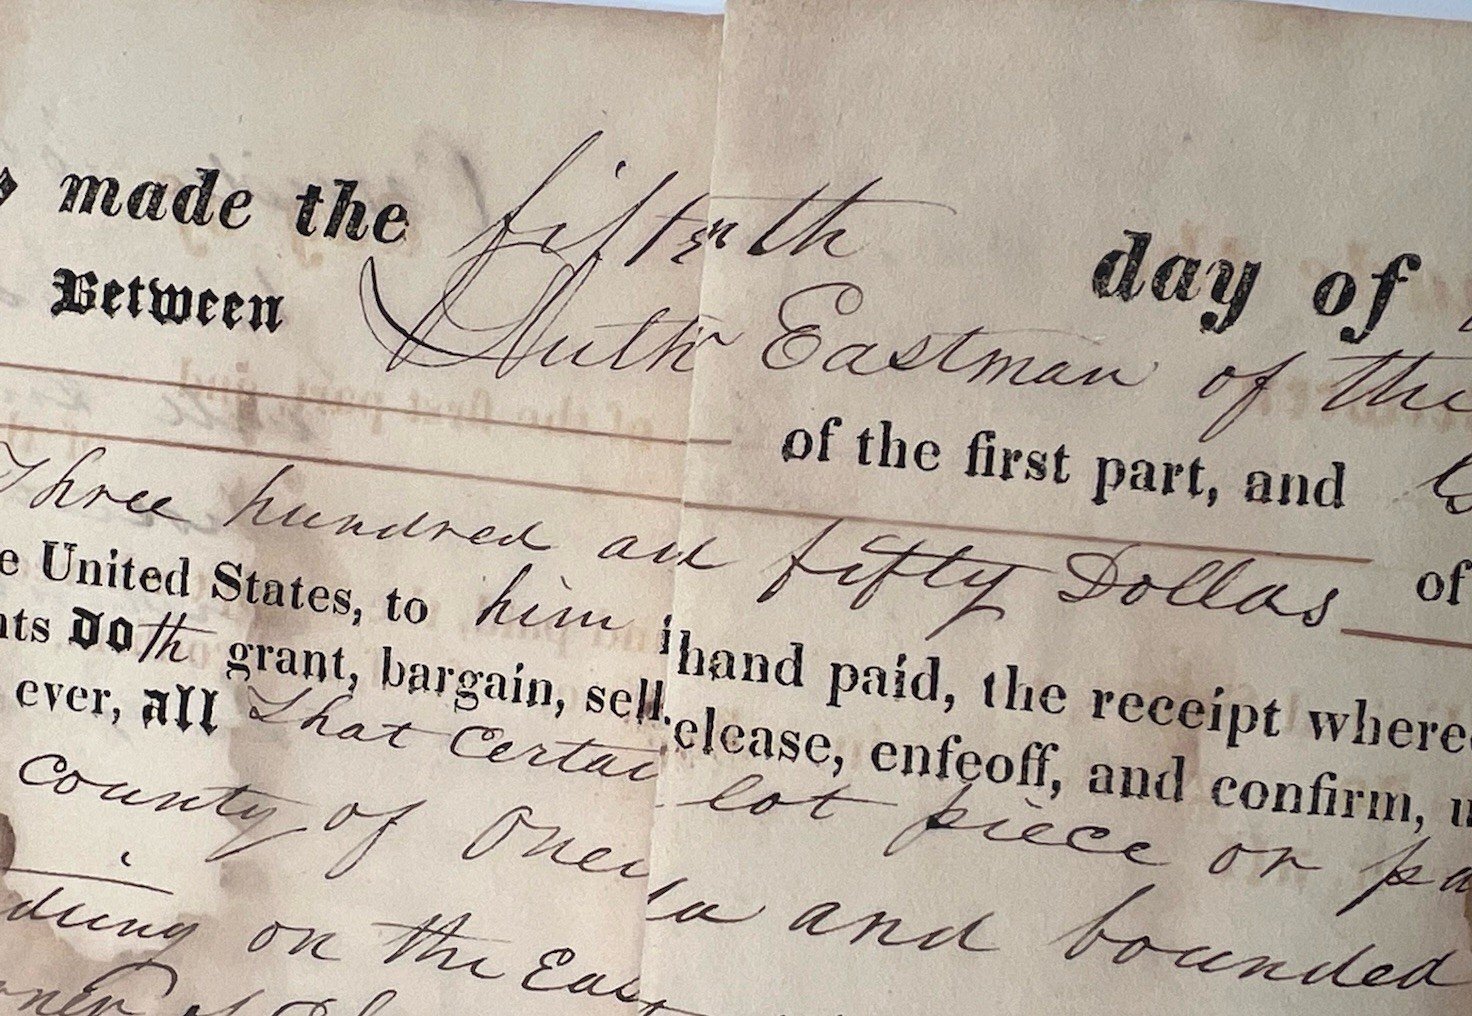 made the fifteenth day of
Between Ruth Eastman of the
of the first part, and
Three hundred and fifty Dollars of
United States, to him in hand paid, the receipt where
doth grant, bargain, sell, release, enfeoff, and confirm, u
ever, all That certain lot piece or pa
county of Oneida and bounded
on the East